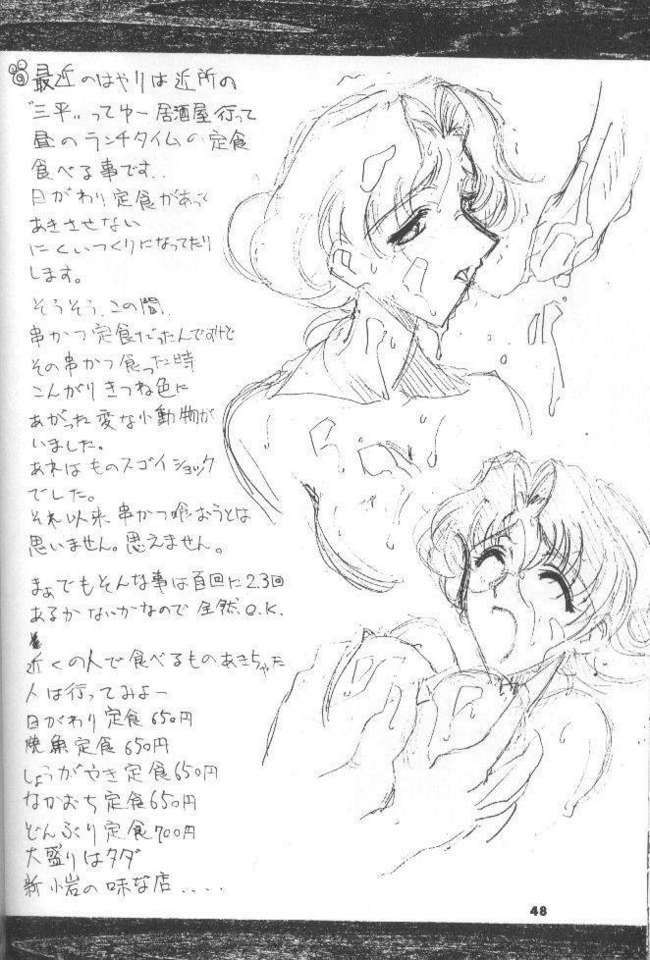 最近のはやりは近所の
"三平"ってゆー居酒屋行って
昼のランチタイムの定食
食べる事です..
日がわり定食があって
あきさせない
にくいつくりになってたり
します。
そうそう、この間、
串かつ定食だったんですけど
その串かつ食った時
こんがりきつね色に
あがった変な小動物が
いました。
あれはものスゴイショック
でした。
それ以来串かつ喰おうとは
思いません。思えません。
まぁでもそんな事は百回に2.3回
あるかないかなので全然O.K.
近くの人で食べるものあきちゃた
人は行ってみよー
日がわり定食650円
焼魚定食650円
しょうがやき定食650円
なかおち定食650円
どんぶり定食700円
大盛りはタダ
新小岩の味な店....
48